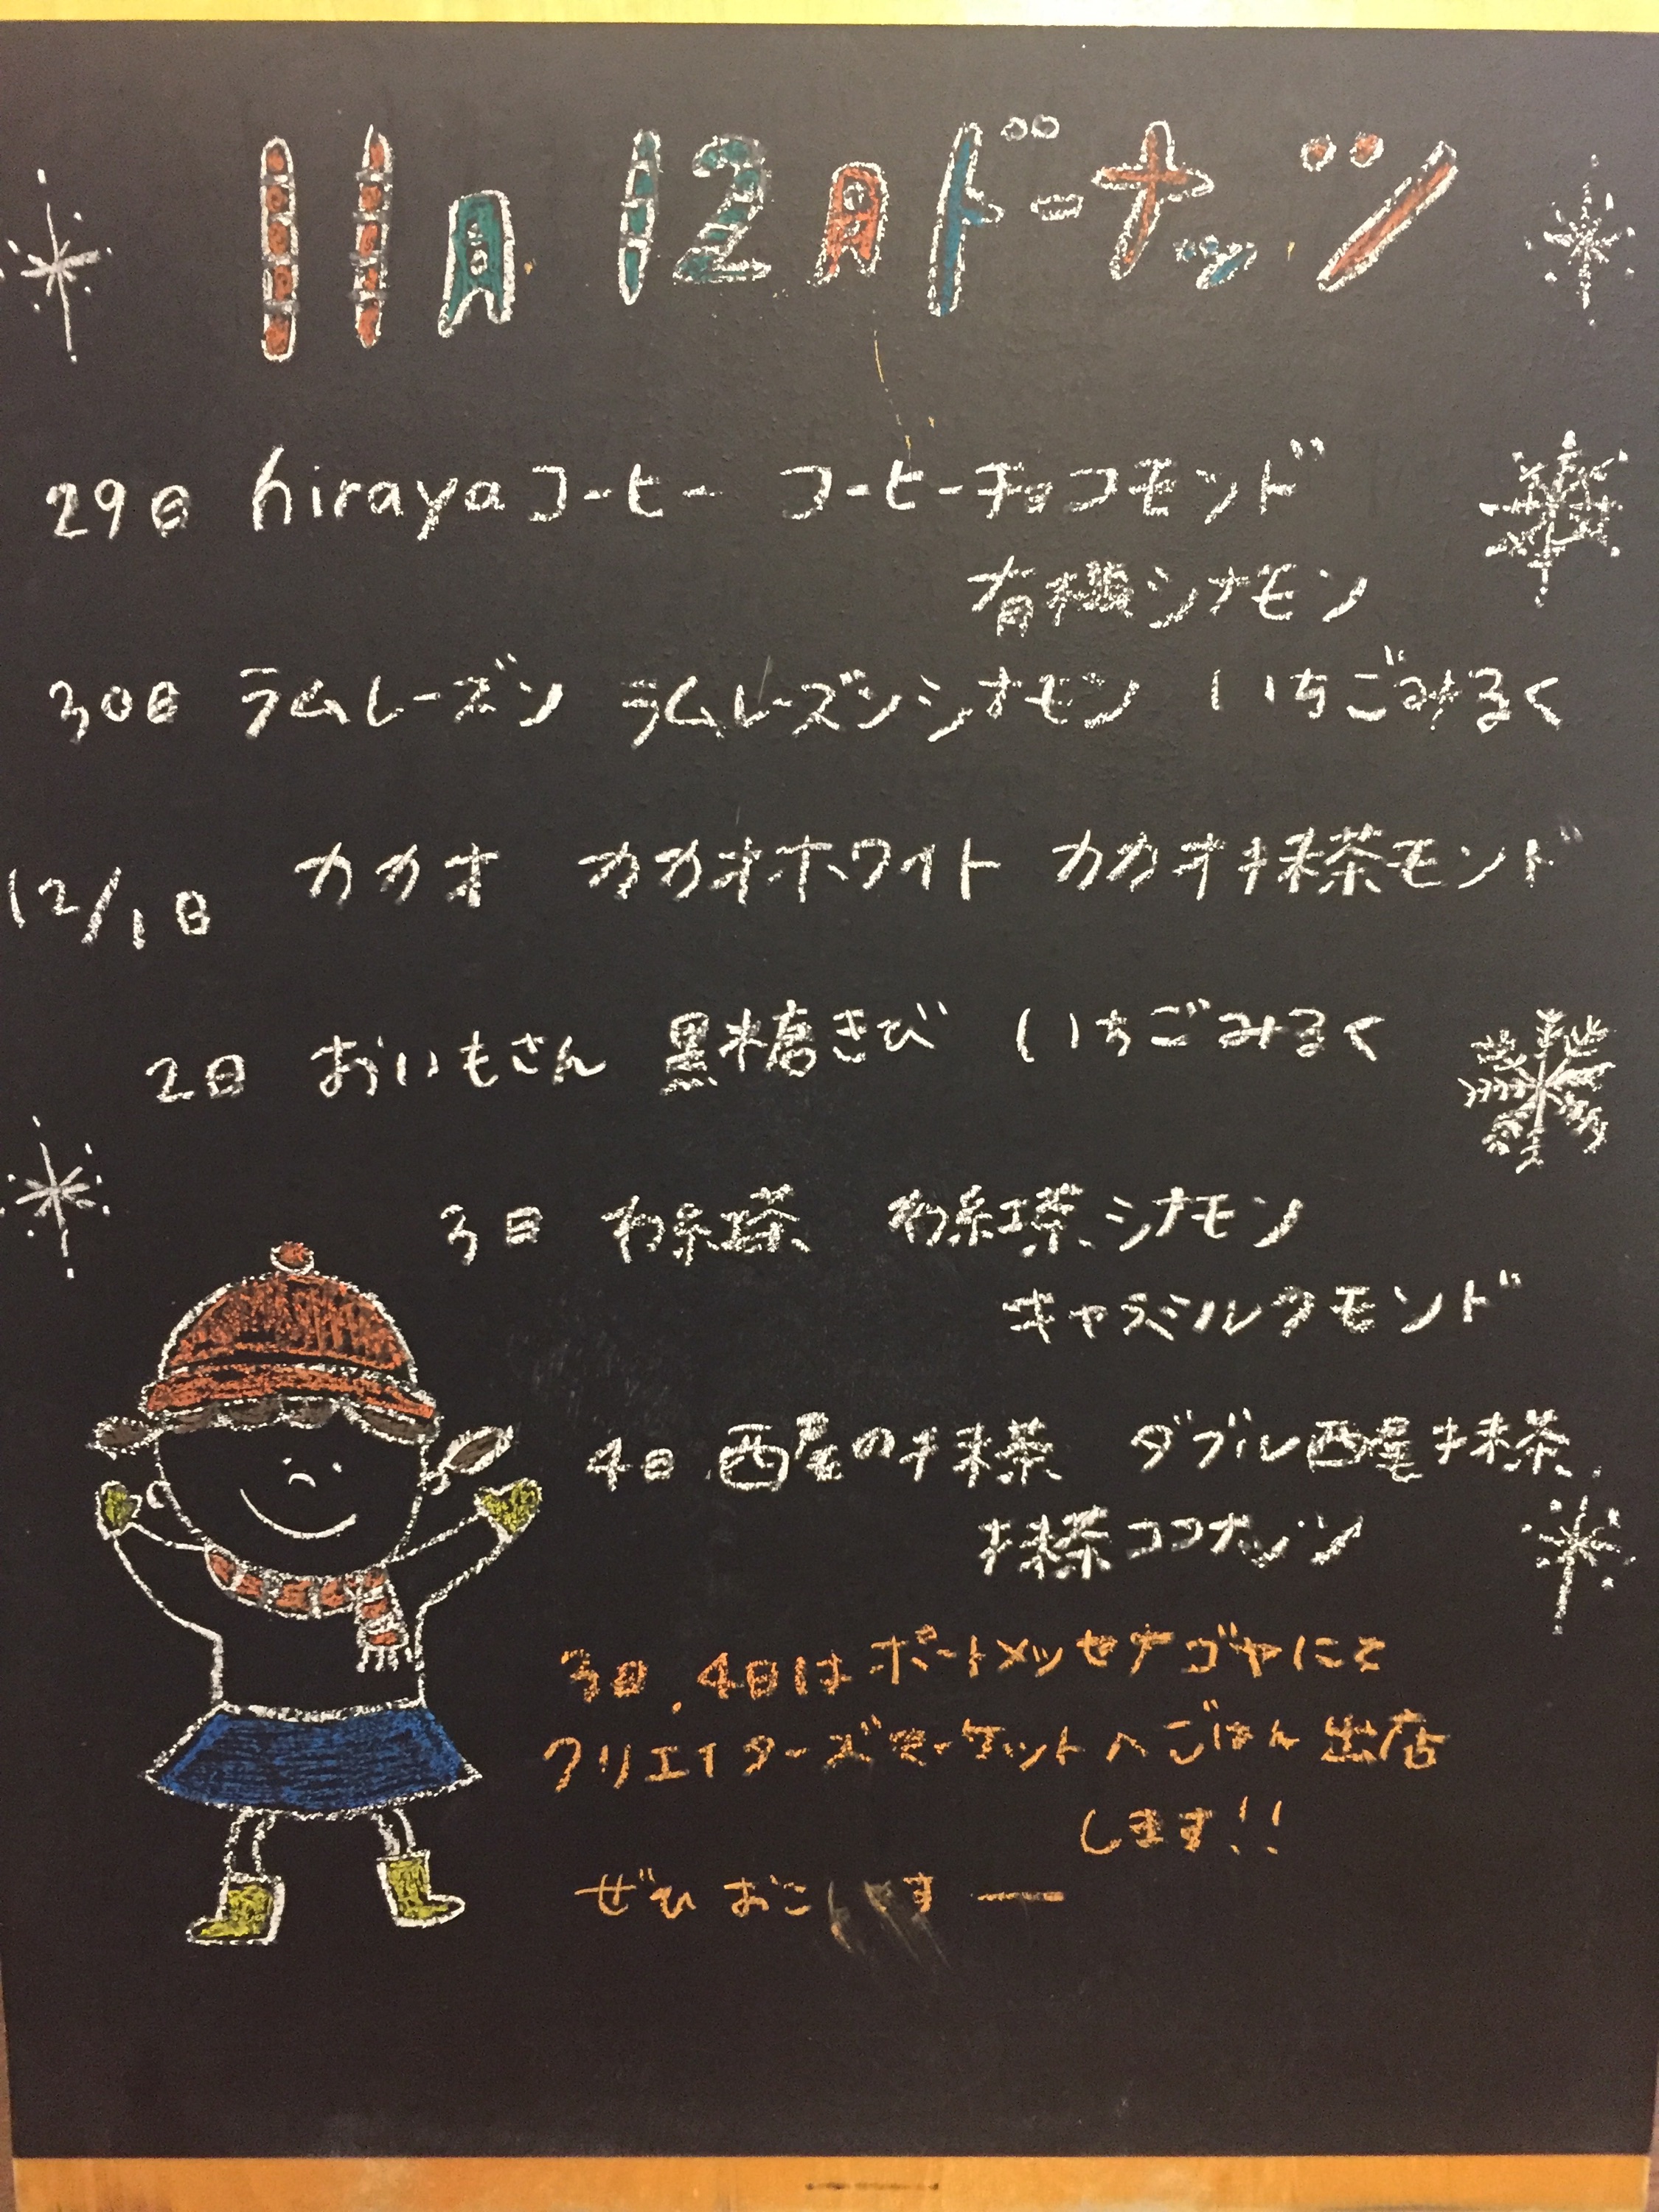 11月12月ドーナッツ
29日 hirayaコーヒー コーヒーチョコモンド
有機シナモン
30日 ラムレーズン ラムレーズンシナモン いちごみるく
12/1日 カカオ カカオホワイト カカオ抹茶モンド
2日 おいもさん 黒糖きび いちごみるく
3日 和紅茶 和紅茶シナモン
キャラミルクモンド
4日 西尾の抹茶 ダブル西尾抹茶
抹茶ココナッツ
3日、4日はポートメッセナゴヤにて
クリエイターズマーケットへごはん出店
します!!
ぜひ おこ す ー